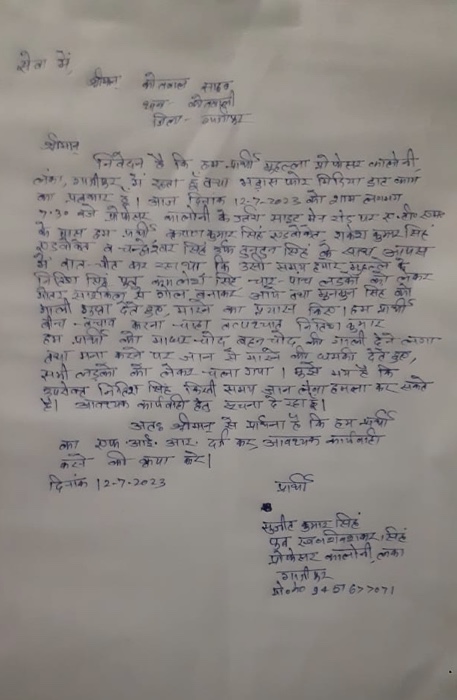 सेवा में,
श्रीमान् कोतवाल साहब
थाना- कोतवाली
जिला- गाजीपुर
श्रीमान्
निवेदन है कि हम प्रार्थी मुहल्ला प्रोफेसर कालोनी
लंका, गाजीपुर में रहता हूँ तथा भड़ास फोर मिडिया डाट काम
का पत्रकार है। आज दिनांक 12-7-2023 को शाम लगभग
7:30 बजे प्रोफेसर कालोनी के साइट मेन रोड पर
के पास हम प्रार्थी कुमार सिंह एडवोकेट राकेश कुमार सिंह
एडवोकेट व चन्द्रेश्वर सिंह उर्फ सिंह के साथ आपस
में बात-चीत कर रहा था कि उसी समय हमारे मुहल्ले के
नितिश सिंह पुत्र सिंह चार-पाँच लड़कों को लेकर
मोटर साइकिल से गोल बनाकर आये तथा सिंह को
गाली गुप्ता देते हुए, मारने का प्रयास किए। हम प्रार्थी
बीच-बचाव करना चाहा तत्पश्चात नितिश कुमार
हम प्रार्थी को मादर-चोद बहन चोद की गाली देने लगा
तथा मना करने पर जान से मारने की धमकी देते हुए,
सभी लड़कों को लेकर चला गया। मुझे भय है कि
उपरोक्त नितिश सिंह किसी समय जान लेवा हमला कर सकते
हैं। आवश्यक कार्यवाही हेतु सूचना दे रहा हूँ।
अतः श्रीमान् से प्रार्थना है कि हम प्रार्थी
का एफ. आई. आर. दर्ज कर आवश्यक कार्यवाही
करने की कृपा करें।
दिनांक 12-7-2023
प्रार्थी
सुजीत कुमार सिंह
पुत्र सिंह
प्रोफेसर कालोनी, लंका
गाजीपुर
मो०नं० 9451677071